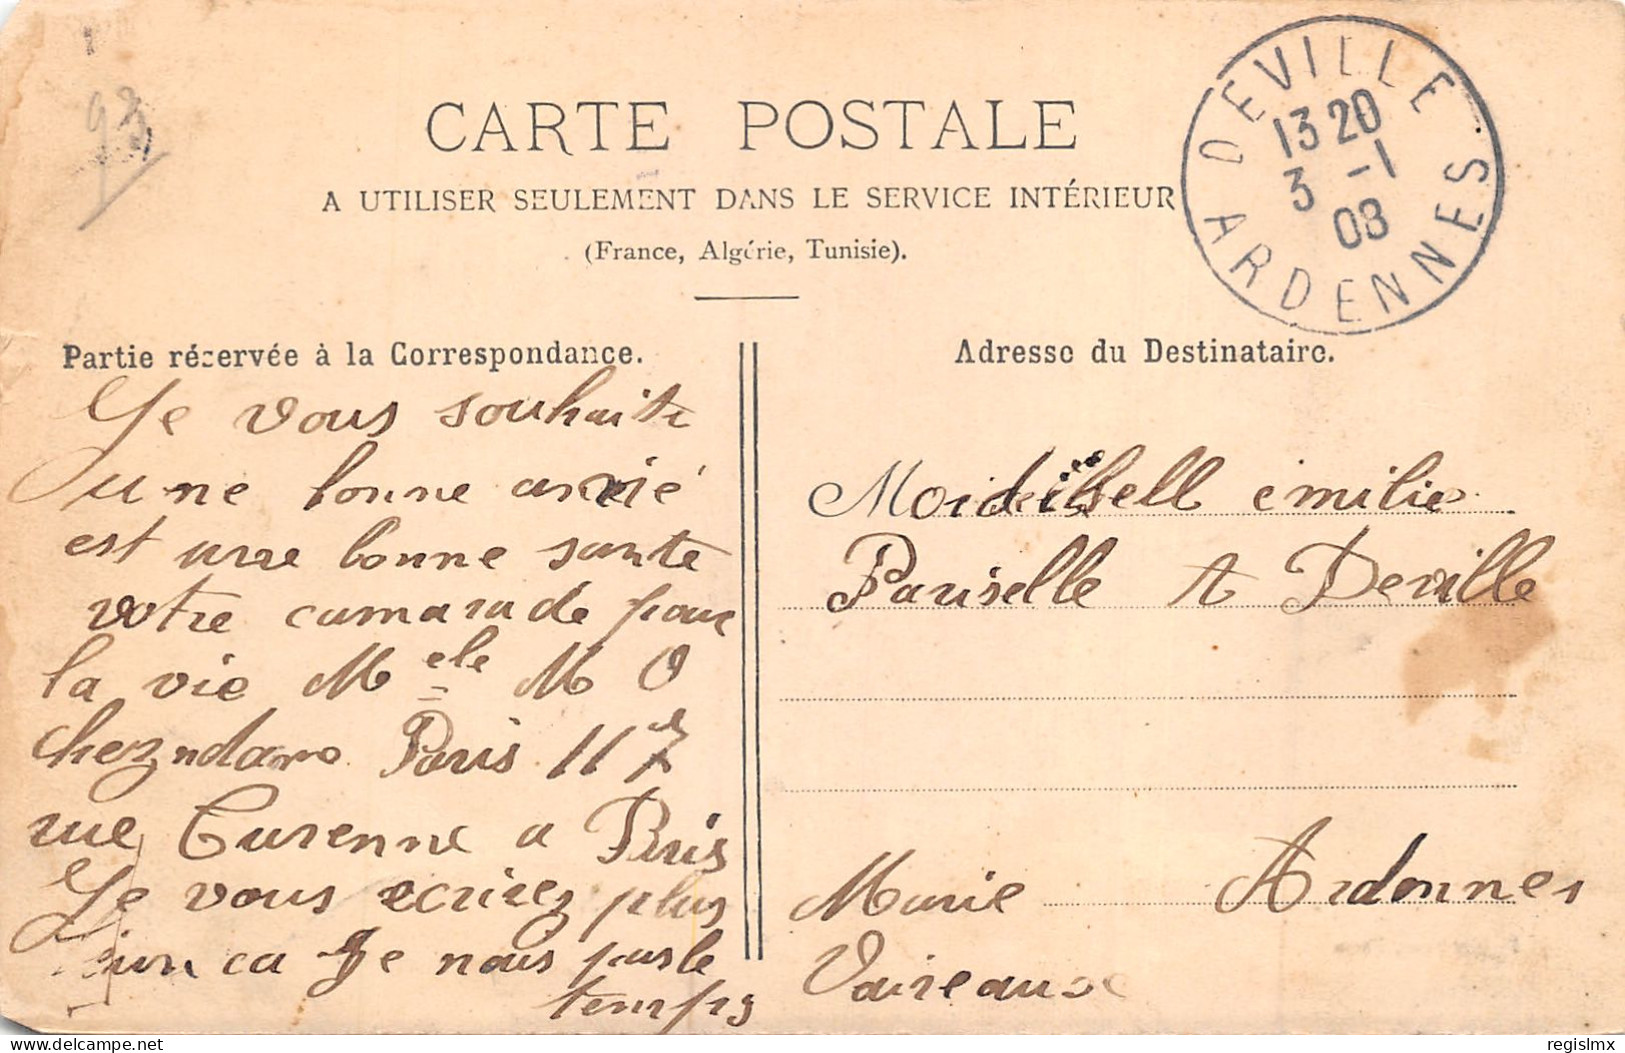 93
CARTE POSTALE
A UTILISER SEULEMENT DANS LE SERVICE INTÉRIEUR
(France, Algérie, Tunisie).
DEVILLE
13 20
3 -1
08
ARDENNES
Partie réservée à la Correspondance.
Je vous souhaite
une bonne
est une bonne sante
votre camarade pour
la vie Melle M O
chez Paris 117
rue Turenne a Paris
Je vous ecrirez plus
ca Je nous pas le
temps
Adresse du Destinataire.
emilie
Pariselle A Deville
Ardonnes
Marie
Vaireaux
delcampe.net
regislmx